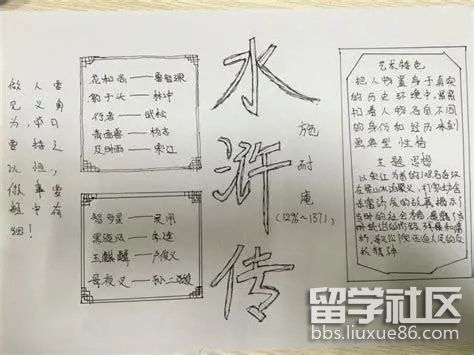 做人要
见义勇
为,学习
要持之
以恒,
做事要
粗中有
细!
花和尚——鲁智深
豹子头——林冲
行者——武松
青面兽——杨志
及时雨——宋江
智多星——吴用
黑旋风——李逵
玉麒麟——卢俊义
母夜叉——孙二娘
水浒传
施耐庵
(1296~1371)
艺术特色
把人物置身于真实
的历史环境中,紧紧
扣着人物各自不同
的身份和经历来刻
画典型性格
主题思想
以宋江为首的108名好汉
在梁山水泊聚义
当时的社会
留学社区
bbs.liuxue86.com